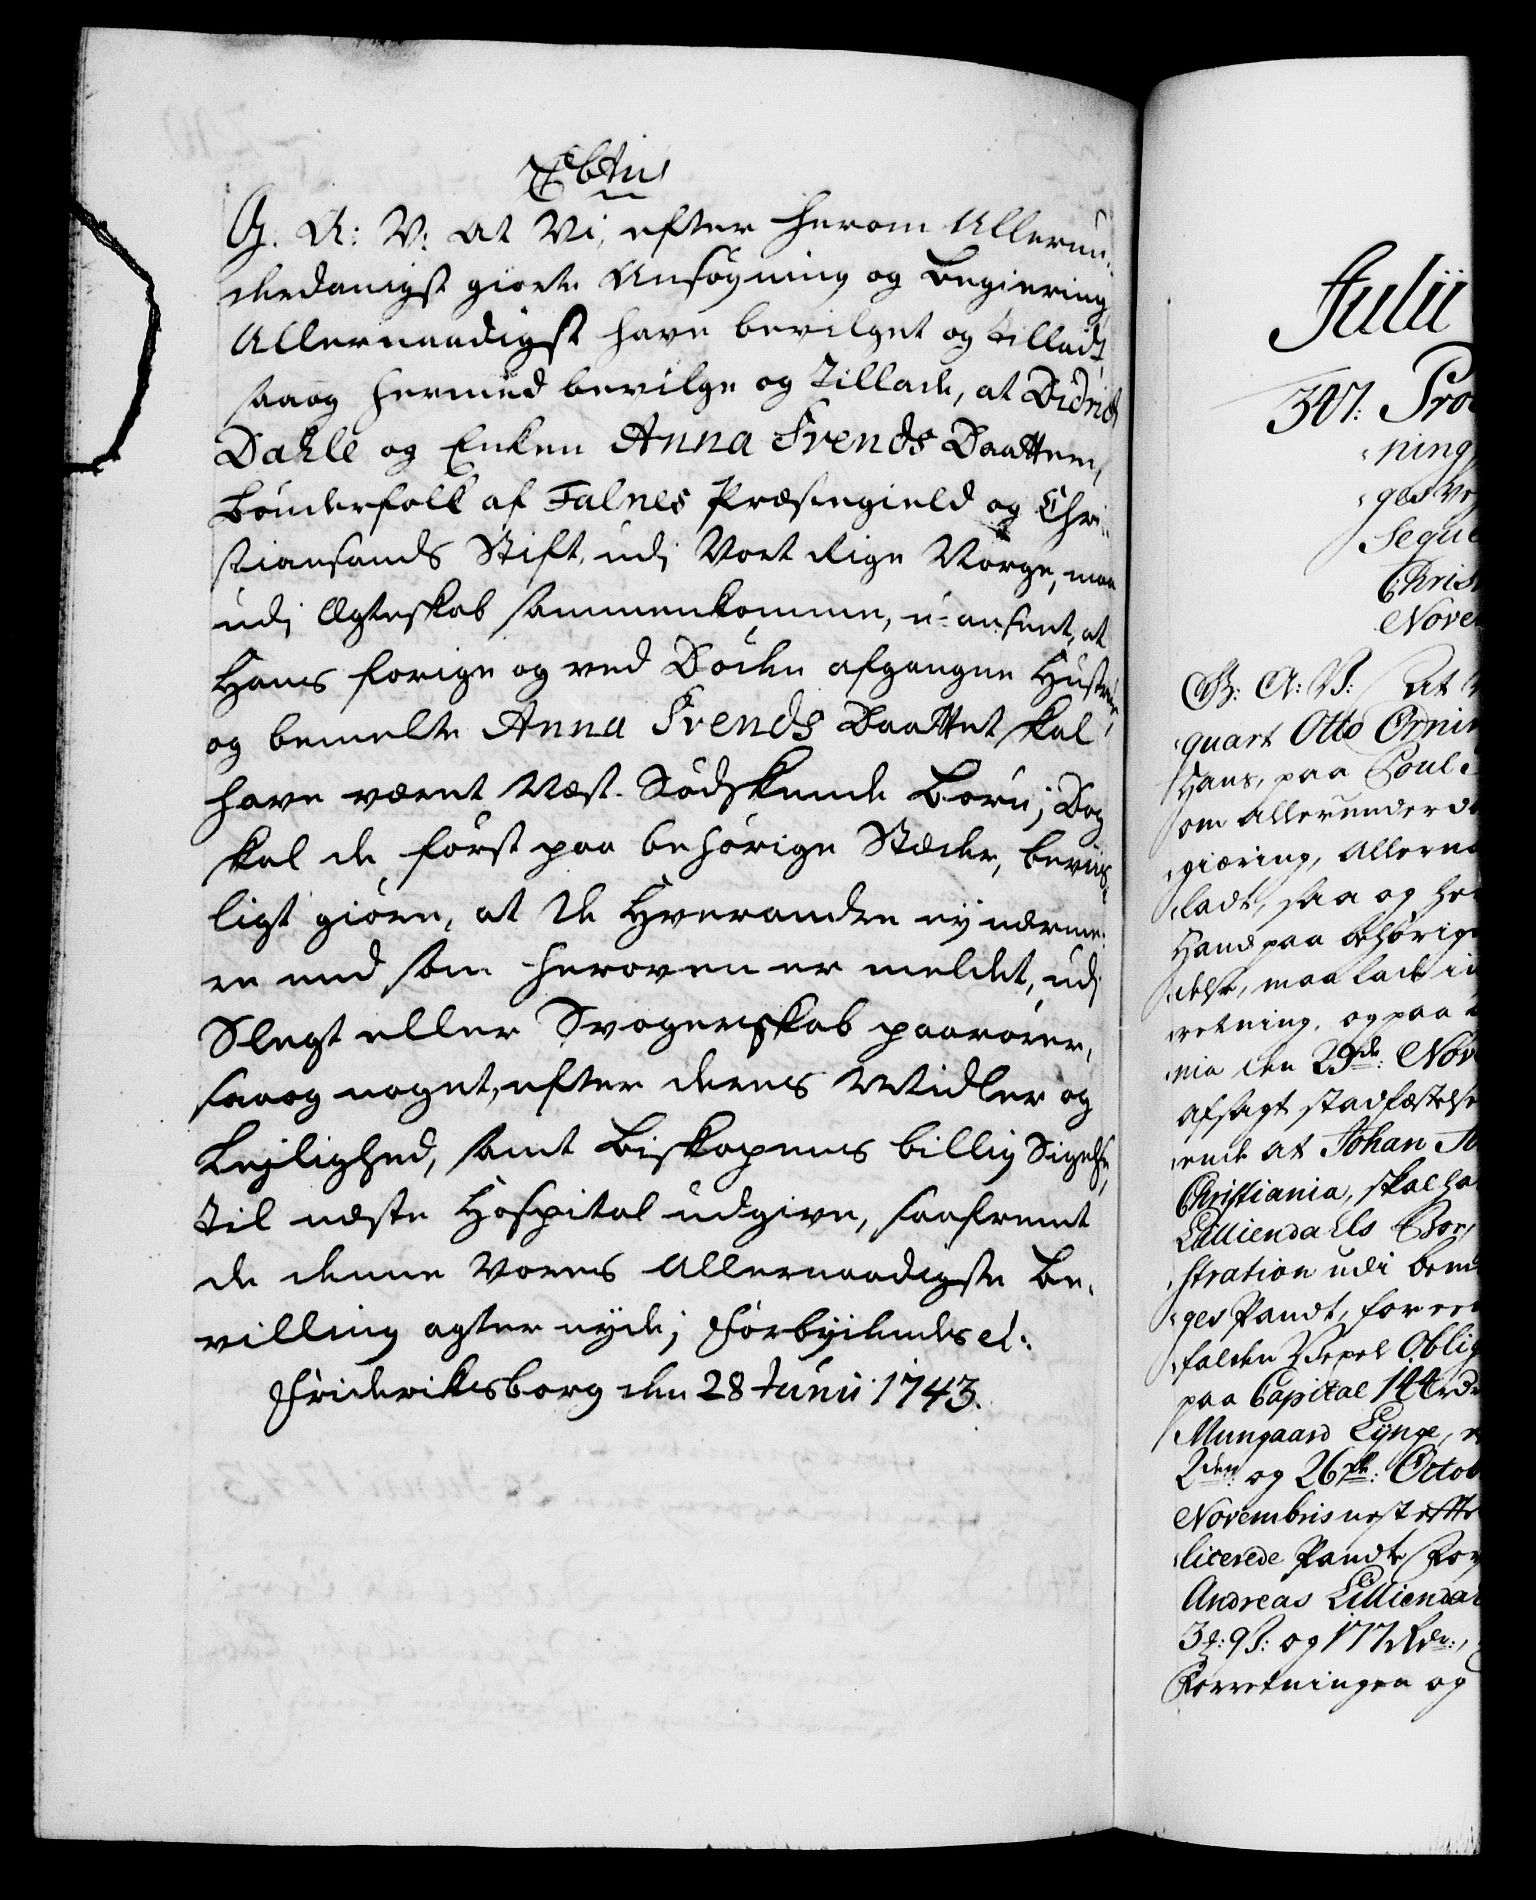 G. A: V: at Vi, efter herom Allerun-
derdanigst giorte Ansøgning og Begiering
Allernaadigst have bevilget og tilladt
saaog hermed bevilge og Tillade, at Didrich
Dahle og Enken Anna Svends Daatter,
Bønderfolk af Falnes Præstegield og Chri-
stiansands Stift, udj Vort Rige Norge, maa
udj Ægteskab sammenkomme, u-anseet, at
Hans forige og ved Døden afgangne Hustrue
og bemelte Anna Svends Daatter skal
have været Næst-Sødskende Børn; Dog
skal de først paa behørige Stæder, beviis-
ligt giøre, at de Hverandre ej nærme-
re end som heroven er meldet, udj
Slegt eller Svogerskab paarører,
saaog noget, efter deres Midler og
Lejlighed, samt Biskopens billig Sigelse,
til næste Hospital udgive, saafremt
de denne Vores Allernaadigste Be-
villing agter nyde; Forbydendes et:
Frideriksborg den 28 Junii 1743.
Julii
307:
ning
Seque
Christ
Nove
G: A: V: at V
quart Otto
Hans, paa Poul
om allerunderd
giæring, Allerna
ladt, saa og her
Hand paa behørige
delse, maa lade in
retning, og paa
nia den 29de: Nov
afsagt stadfæstelse
ende at Johan
Christiania, skal ha
Lilliendahls
stration udi bem
ges Pandt, for
falden Oblig
paa Capital 144 rd
Mungaard
2den og 26de: Octob
Novembris nest efft
licerede Pandte For
Andreas Lilliendah
og 177 Rdr:,
Forretningen og